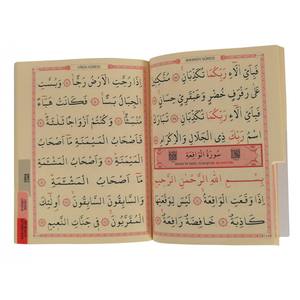 RAHMÂN SÛRESİ
فَبِاَيِّ اٰلَٓاءِ رَبِّكُمَا تُكَذِّبَانِ مُتَّكِـ۪ٔينَ
عَلٰى رَفْرَفٍ خُضْرٍ وَعَبْقَرِيٍّ حِسَانٍ
فَبِاَيِّ اٰلَٓاءِ رَبِّكُمَا تُكَذِّبَانِ تَبَارَكَ
اسْمُ رَبِّكَ ذِي الْجَلَالِ وَالْاِكْرَامِ
سُورَةُ الْوَاقِعَةِ
بِسْمِ اللّٰهِ الرَّحْمٰنِ الرَّحِيمِ
اِذَا وَقَعَتِ الْوَاقِعَةُ لَيْسَ لِوَقْعَتِهَا
كَاذِبَةٌ خَافِضَةٌ رَافِعَةٌ
VÂKIA SÛRESİ
اِذَا رُجَّتِ الْاَرْضُ رَجًّا وَبُسَّتِ
الْجِبَالُ بَسًّا فَكَانَتْ هَبَٓاءً
مُنْبَثًّا وَكُنْتُمْ اَزْوَاجًا ثَلٰثَةً
فَاَصْحَابُ الْمَيْمَنَةِ مَٓا اَصْحَابُ
الْمَيْمَنَةِ وَاَصْحَابُ الْمَشْـَٔمَةِ
مَٓا اَصْحَابُ الْمَشْـَٔمَةِ
وَالسَّابِقُونَ السَّابِقُونَ اُو۬لٰٓئِكَ
الْمُقَرَّبُونَ فِي جَنَّاتِ النَّعِيمِ